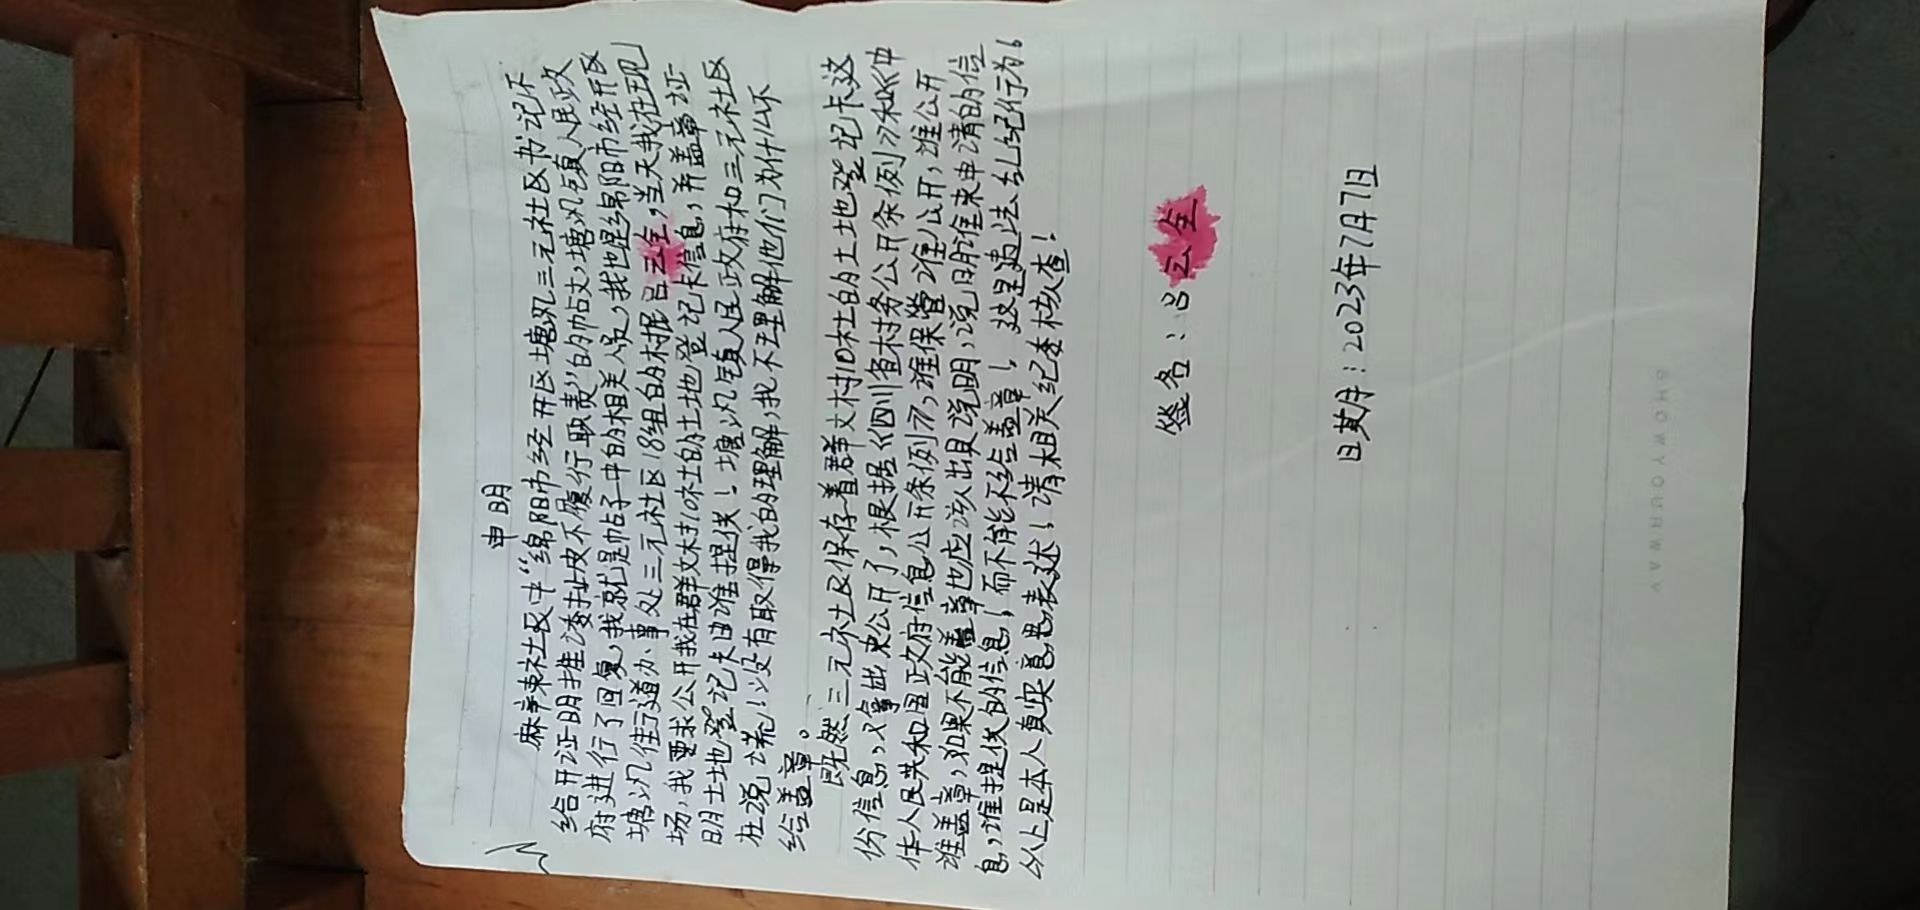 申明
麻辣社区中“绵阳市经开区塘汎三元社区书记不
给开证明推诿扯皮不履行职责”的帖文,塘汎镇人民政
府进行了回复,我就是帖子中的相关人员,我也是绵阳市经开区
塘汎街道办事处三元社区18组的村民吕云全,当天我在现
场,我要求公开我在群文村10社的土地登记卡信息,并盖章证
明土地登记卡由谁提供!塘汎镇人民政府和三元社区
在说谎!没有取得我的理解,我不理解他们为什么不
给盖章。
既然三元社区保存着群文村10社的土地登记卡这
份信息,又拿出来公开了,根据《四川省村务公开条例》和《中
华人民共和国政府信息公开条例》,谁保管谁公开,谁公开
谁盖章,如果不能盖章也应该出具说明,说明谁来申请的信
息,谁提供的信息!而不能不给盖章!这是违法乱纪行为!
以上是本人真实意思表述!请相关纪委核查!
签名:吕云全
日期:2023年7月7日
SHOWYOURWAY